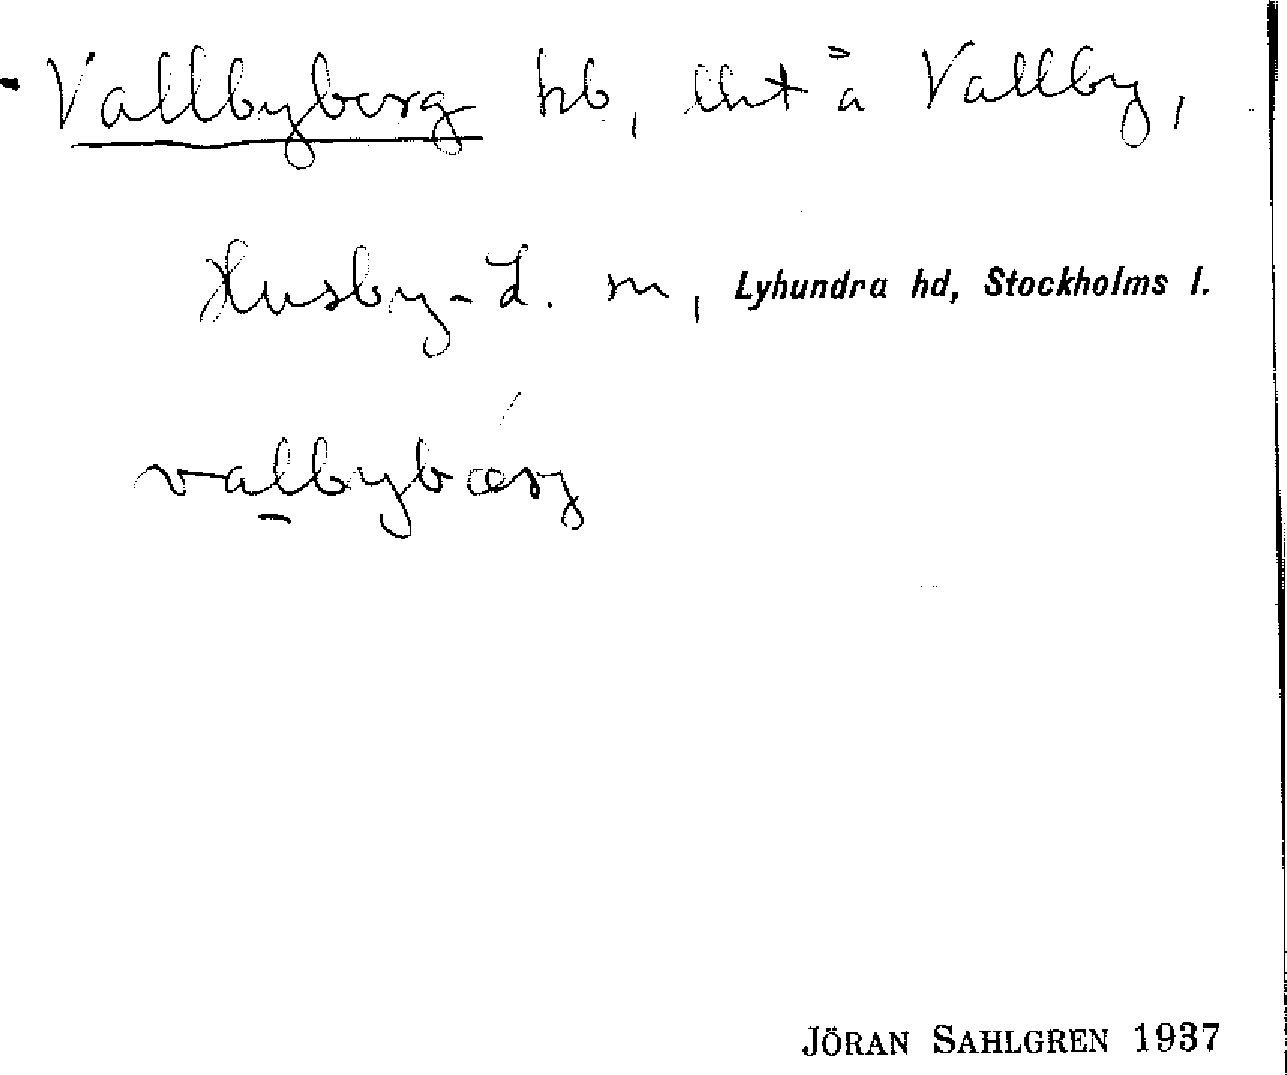 Vallbyberg hb, lht å Vallby,
Husby-L. sn, Lyhundra hd, Stockholms l.
valbybærj
JÖRAN SAHLGREN 1937